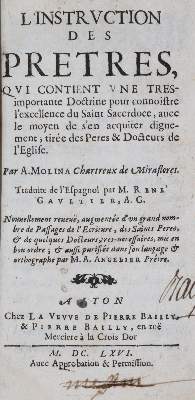 L'INSTRVCTION
DES
PRETRES,
QVI CONTIENT VNE TRES-
importante Doctrine pour connoiſtre
l'excellence du Saint Sacerdoce, auec
le moyen de s'en acquiter digne-
ment; tirée des Peres & Docteurs de
l'Egliſe.
Par A. MOLINA Chartreux de Miraflores.
Traduite de l'Eſpagnol par M. RENE'
GAVLTIER, A. C.
Nouuellement reueuë, augmentée d'vn grand nom-
bre de Paſſages de l'Ecriture, des Saints Peres,
& de quelques Docteurs, tres-neceſſaires, miſe en
bon ordre; & auſſi puriſiée dans ſon langage &
orthographe par M. A. ANGELIER Prêtre.
A LYON
Chez LA VEVVE DE PIERRE BAILLY,
& PIERRE BAILLY, en ruë
Merciere à la Croix Dor
M. DC. LXVI.
Auec Approbation & Permiſſion.